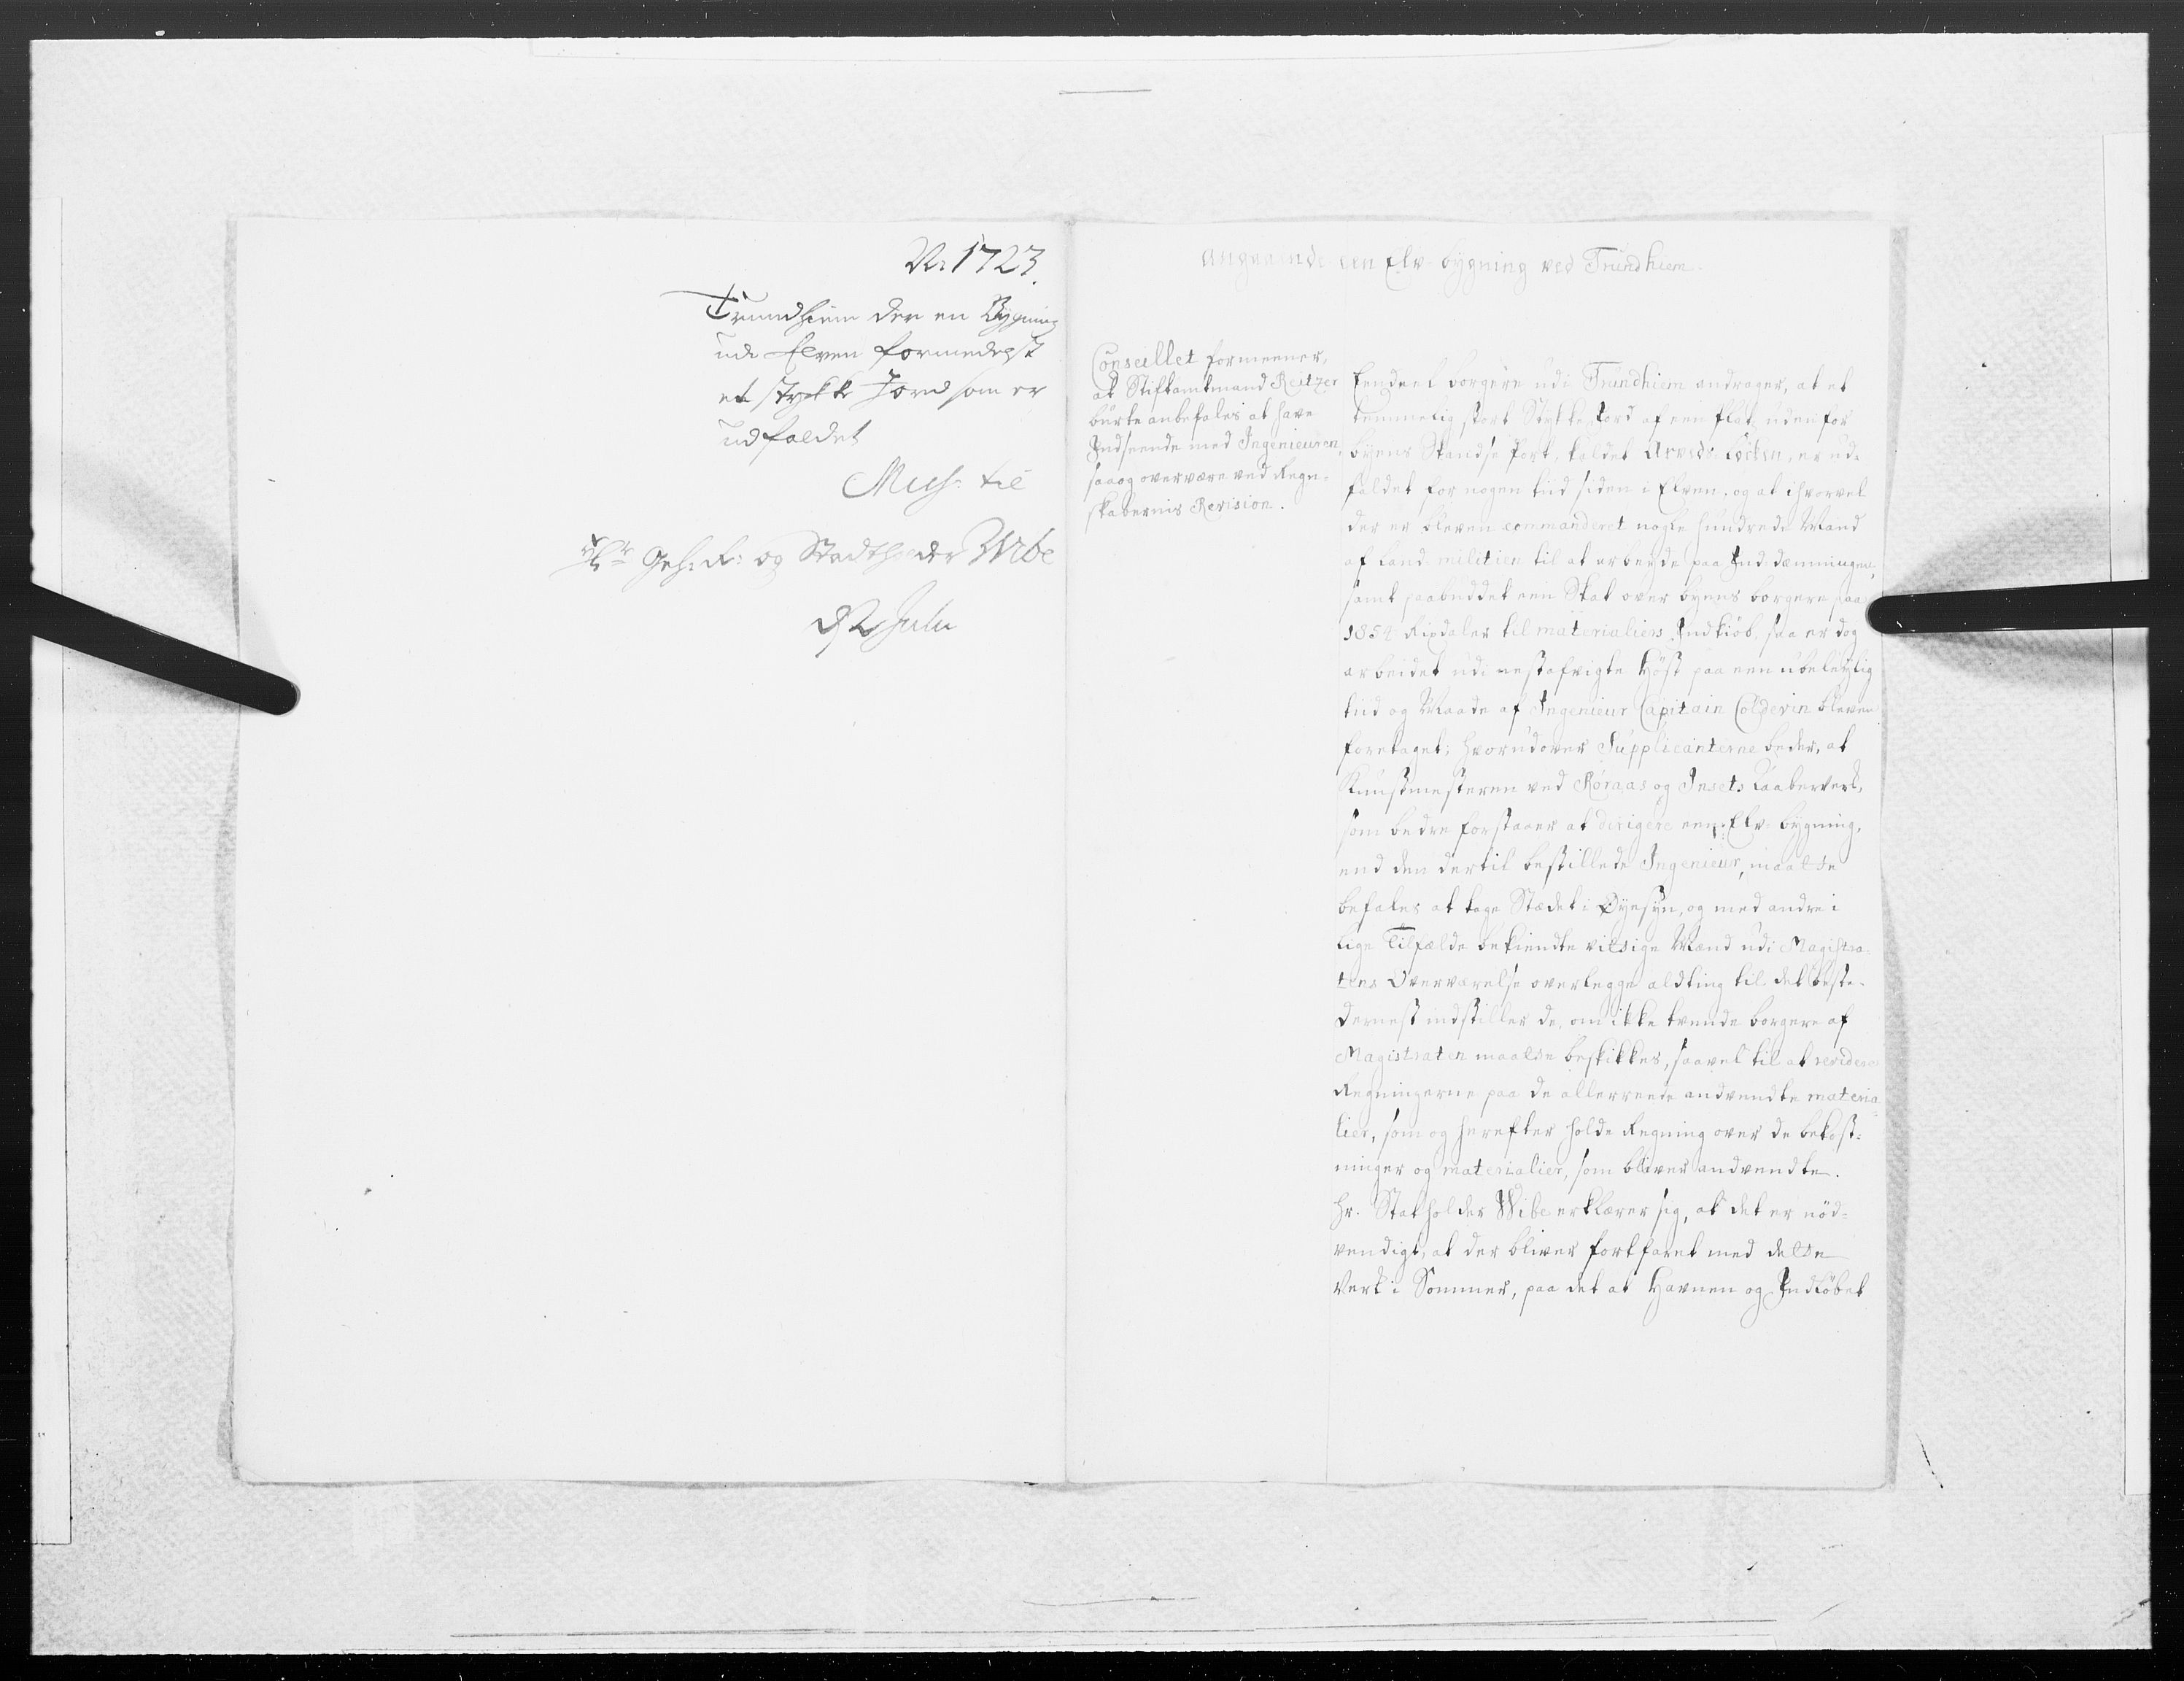 No 1723.
Trundhiem der en Bygning
udi Elven formedelst
et stykke Jord som er
udfaldet
Miss: til
Hr Geh: R: og Stadtholder Wibe
d 2 Julii
Angaaende een Elv-bygning ved Trundhiem.
Conseillet formeener,
at Stiftamtmand Reitzer
burte anbefales at have
Indseende med Ingenieuren,
saa og overvære ved Regn-
skabernis Revision.
Eendeel borgere udi Trundhiem andrager, at et
temmelig stort Stykke Jord af een Plats udenfor
byens Skandse Port, kaldet Arveds Løcken, er ud-
faldet for nogen tiid siden i Elven, og at ihvorvel
der er bleven commanderet nogle hundrede Mand
af Land-militien til at arbeyde paa Inddemningen,
samt paabuddet een Skat over byens borgere paa
1854 Rixdaler til materialiers Indkiøb, saa er dog
arbeidet udi nestafvigte Høst paa een ubeleylig
tiid og Maade af Ingenieur Capitain Coldevin bleven
foretaget; hvorudover Supplicanterne beder, at
Kunstmesteren ved Røraas og Insets Kaaberverk,
som bedre forstaaer at dirigere een Elv-bygning,
end den dertil bestillede Ingenieur, maatte
befales at tage Stædet i Øyesyn, og med andre i
lige Tilfælde bekiendte vittige Mænd udi Magistra-
tens Overværelse overlegge alting til det beste.
Dernest indstiller de, om ikke tvende borgere af
Magistraten maatte beskikkes, saavel til at revidere
Regningerne paa de allerreede andvendte materia-
lier, som og herefter holde Regning over de bekost-
ninger og materialier, som bliver andvendte.
Hr. Statholder Wibe erklærer sig, at det er nød-
vendigt, at der bliver fortfaret med dette
Verk i Sommer, paa det at Havnen og Indløbet